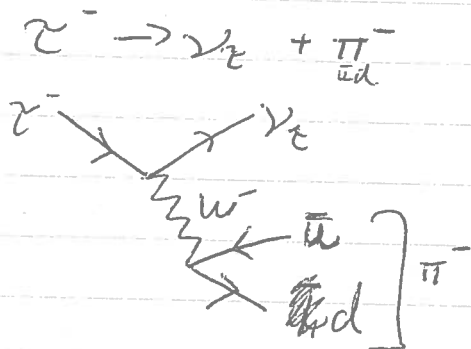 τ⁻ → ν_τ + π⁻
ūd
τ⁻ ν_τ
W⁻
ū
d
π⁻